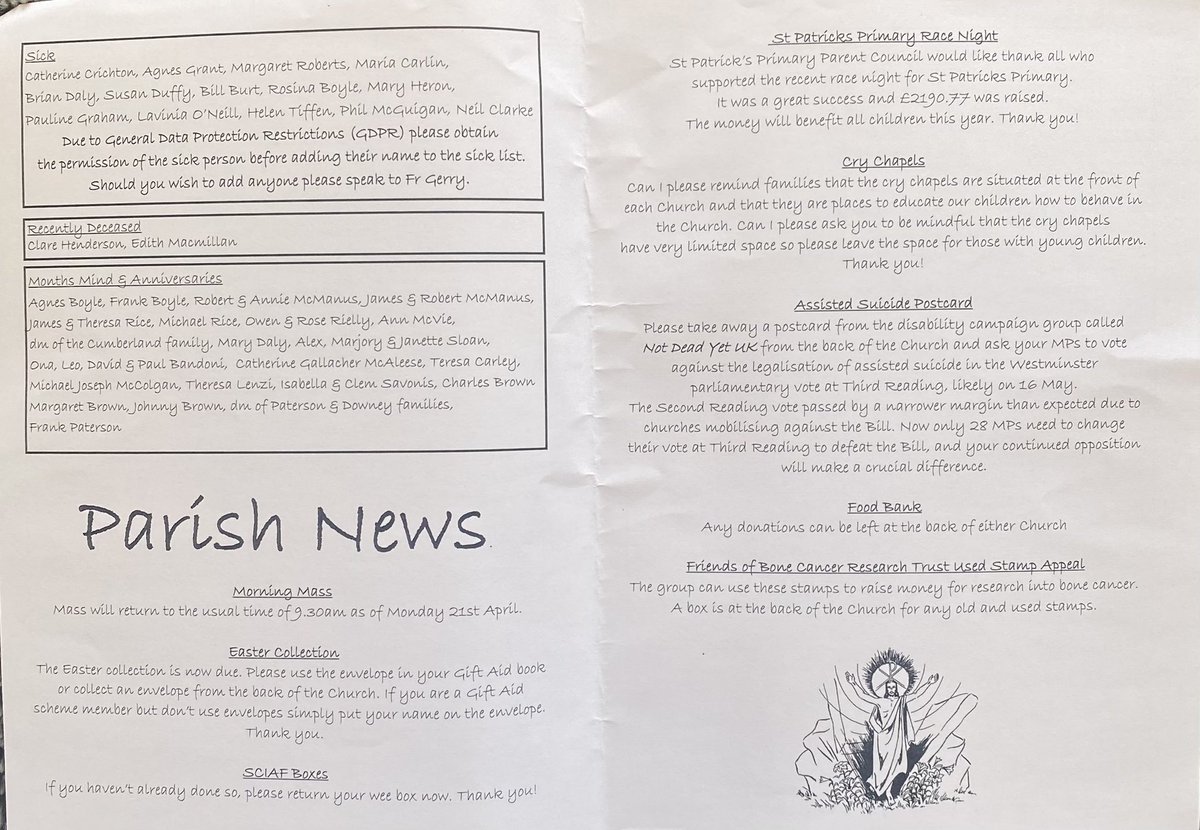 Sick
Catherine Crichton, Agnes Grant, Margaret Roberts, Maria Carlin,
Brian Daly, Susan Duffy, Bill Burt, Rosina Boyle, Mary Heron,
Pauline Graham, Lavinia O'Neill, Helen Tiffen, Phil McGuigan, Neil Clarke
Due to General Data Protection Restrictions (GDPR) please obtain
the permission of the sick person before adding their name to the sick list.
Should you wish to add anyone please speak to Fr Gerry.
Recently Deceased
Clare Henderson, Edith Macmillan
Months Mind & Anniversaries
Agnes Boyle, Frank Boyle, Robert & Annie McManus, James & Robert McManus,
James & Theresa Rice, Michael Rice, Owen & Rose Rielly, Ann McVie,
dm of the Cumberland family, Mary Daly, Alex, Marjory & Janette Sloan,
Ona, Leo, David & Paul Bandoni, Catherine Gallacher McAleese, Teresa Carley,
Michael Joseph McColgan, Theresa Lenzi, Isabella & Clem Savonis, Charles Brown
Margaret Brown, Johnny Brown, dm of Paterson & Downey families,
Frank Paterson
Parish News.
Morning Mass
Mass will return to the usual time of 9.30am as of Monday 21st April.
Easter Collection
The Easter collection is now due. Please use the envelope in your Gift Aid book
or collect an envelope from the back of the Church. If you are a Gift Aid
scheme member but don't use envelopes simply put your name on the envelope.
Thank you.
SCIAF Boxes
If you haven't already done so, please return your wee box now. Thank you!
St Patricks Primary Race Night
St Patrick's Primary Parent Council would like thank all who
supported the recent race night for St Patricks Primary.
It was a great success and £2190.77 was raised.
The money will benefit all children this year. Thank you!
Cry Chapels
Can I please remind families that the cry chapels are situated at the front of
each Church and that they are places to educate our children how to behave in
the Church. Can I please ask you to be mindful that the cry chapels
have very limited space so please leave the space for those with young children.
Thank you!
Assisted Suicide Postcard
Please take away a postcard from the disability campaign group called
Not Dead Yet UK from the back of the Church and ask your MPs to vote
against the legalisation of assisted suicide in the Westminster
parliamentary vote at Third Reading, likely on 16 May.
The Second Reading vote passed by a narrower margin than expected due to
churches mobilising against the Bill. Now only 28 MPs need to change
their vote at Third Reading to defeat the Bill, and your continued opposition
will make a crucial difference.
Food Bank
Any donations can be left at the back of either Church
Friends of Bone Cancer Research Trust Used Stamp Appeal
The group can use these stamps to raise money for research into bone cancer.
A box is at the back of the Church for any old and used stamps.